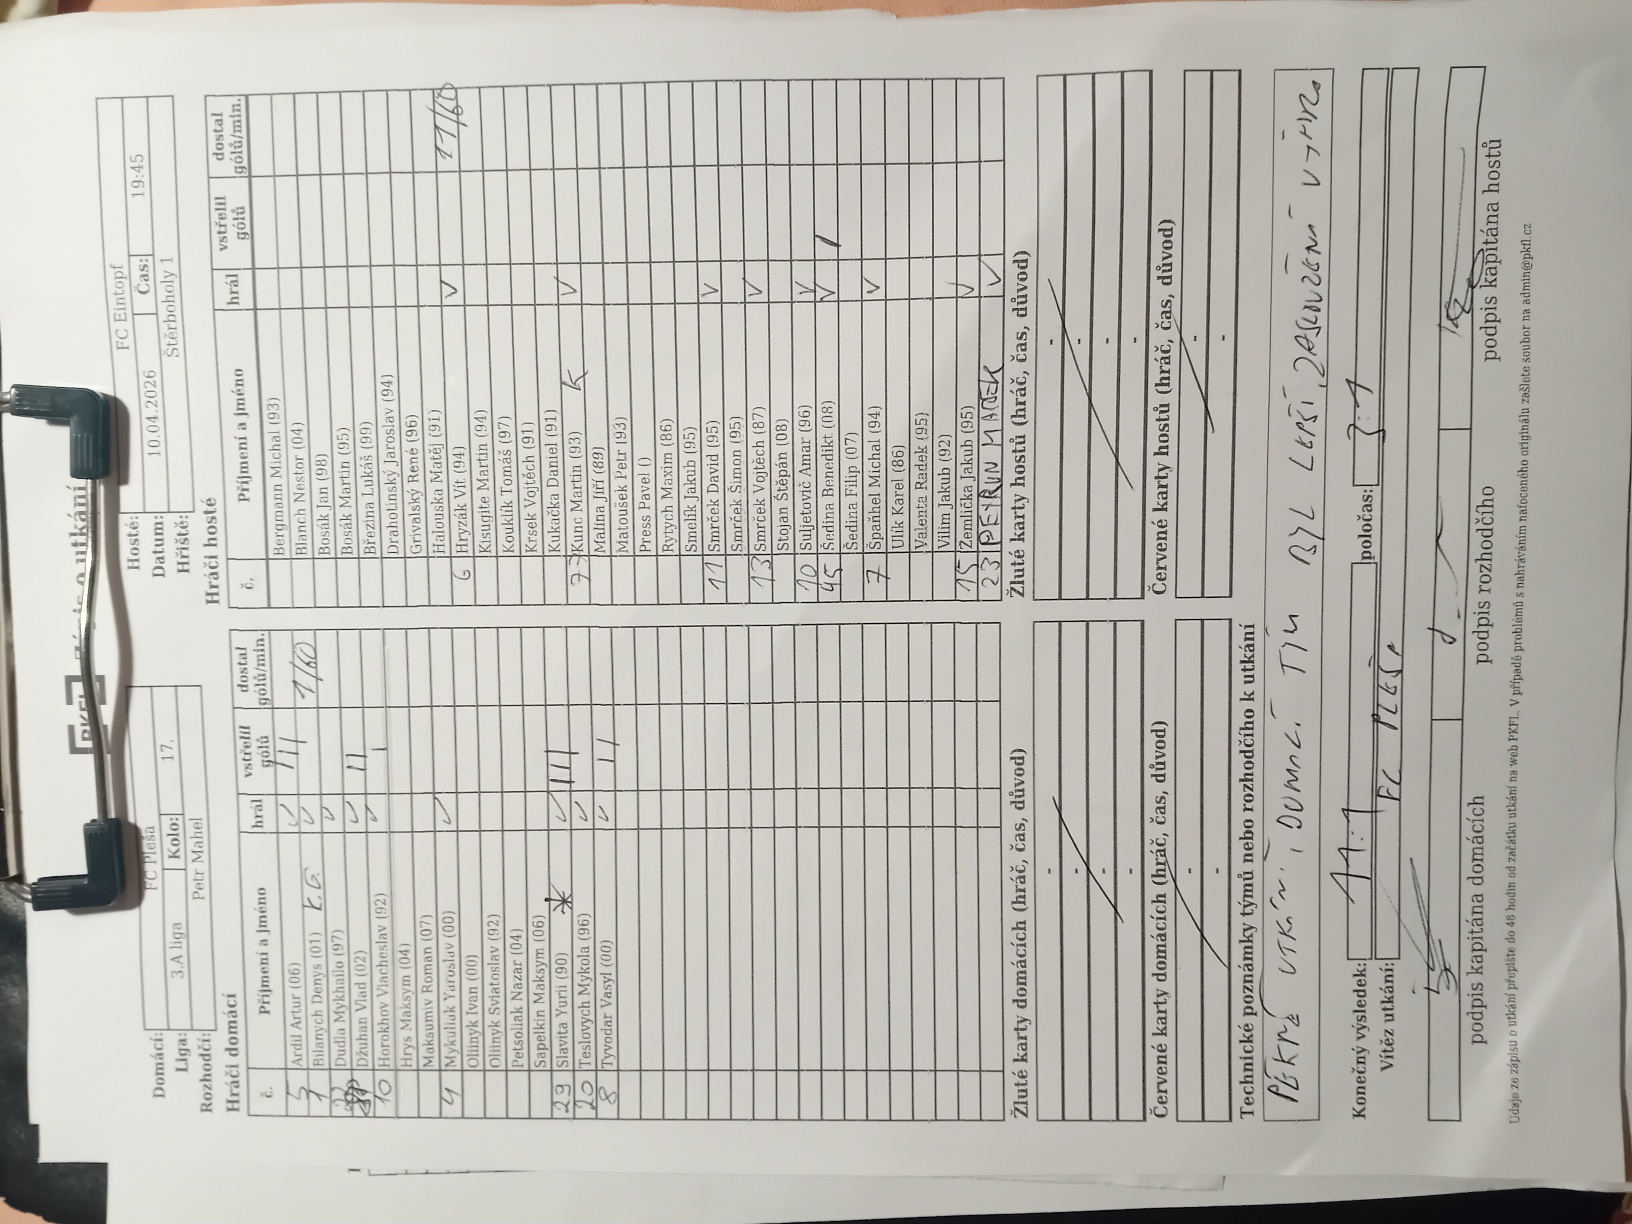 PKFL Zápis o utkání
Domácí: FC Pleša
Hosté: FC Eintopf
Liga: 3.A liga Kolo: 17.
Datum: 10.04.2026 Čas: 19:45
Rozhodčí: Petr Mahel
Hřiště: Štěrboholy 1
Hráči domácí
č. Příjmení a jméno hrál vstřelil gólů dostal gólů/min.
5 Ardil Artur (06) V III
1 Bilanych Denys (01) V 1/60
Dudla Mykhailo (97) V
Džuhan Vlad (02) V II
10 Horokhov Viacheslav (92) V I
Hrys Maksym (04)
Maksumiv Roman (07)
4 Mykuliak Yaroslav (00) V
Oliinyk Ivan (00)
Oliinyk Sviatoslav (92)
Petsoliak Nazar (04)
Sapelkin Maksym (06)
29 Slavita Yurii (90) V III
20 Teslovych Mykola (96) V
8 Tyvodar Vasyl (00) V II
Hráči hosté
č. Příjmení a jméno hrál vstřelil gólů dostal gólů/min.
Bergmann Michal (93)
Blanch Nestor (04)
Bosák Jan (98)
Bosák Martin (95)
Březina Lukáš (99)
Drahotínský Jaroslav (94)
Grivalský René (96)
Halouska Matěj (91)
6 Hryzák Vít (94) V 11/60
Kisugite Martin (94)
Kouklík Tomáš (97)
Krsek Vojtěch (91)
Kukačka Daniel (91)
77 Kunc Martin (93) K V
Malina Jiří (89)
Matoušek Petr (93)
Press Pavel ()
Rytych Maxim (86)
Smelík Jakub (95)
11 Smrček David (95) V
Smrček Šimon (95)
13 Smrček Vojtěch (87) V
Stojan Štěpán (08)
10 Suljetovič Amar (96) V
45 Šedina Benedikt (08) V I
Šedina Filip (07)
7 Špaňhel Michal (94) V
Ulik Karel (86)
Valenta Radek (95)
Vilím Jakub (92)
15 Zemlička Jakub (95) V
23 MAREK V
Žluté karty domácích (hráč, čas, důvod)
-
-
-
-
Žluté karty hostů (hráč, čas, důvod)
-
-
-
-
Červené karty domácích (hráč, čas, důvod)
-
-
Červené karty hostů (hráč, čas, důvod)
-
-
Technické poznámky týmů nebo rozhodčího k utkání
PĚKNÉ UTKÁNÍ, DOMÁCÍ TÝM BYL LEPŠÍ, ZASLOUŽENÍ VÝHRA
Konečný výsledek: 11:1 poločas: 3:1
Vítěz utkání: FC PLEŠA
podpis kapitána domácích
podpis rozhodčího
podpis kapitána hostů
Údaje ze zápisu o utkání přepište do 48 hodin od začátku utkání na web PKFL. V případě problémů s nahráváním nafoceného originálu zašlete soubor na admin@pkfl.cz